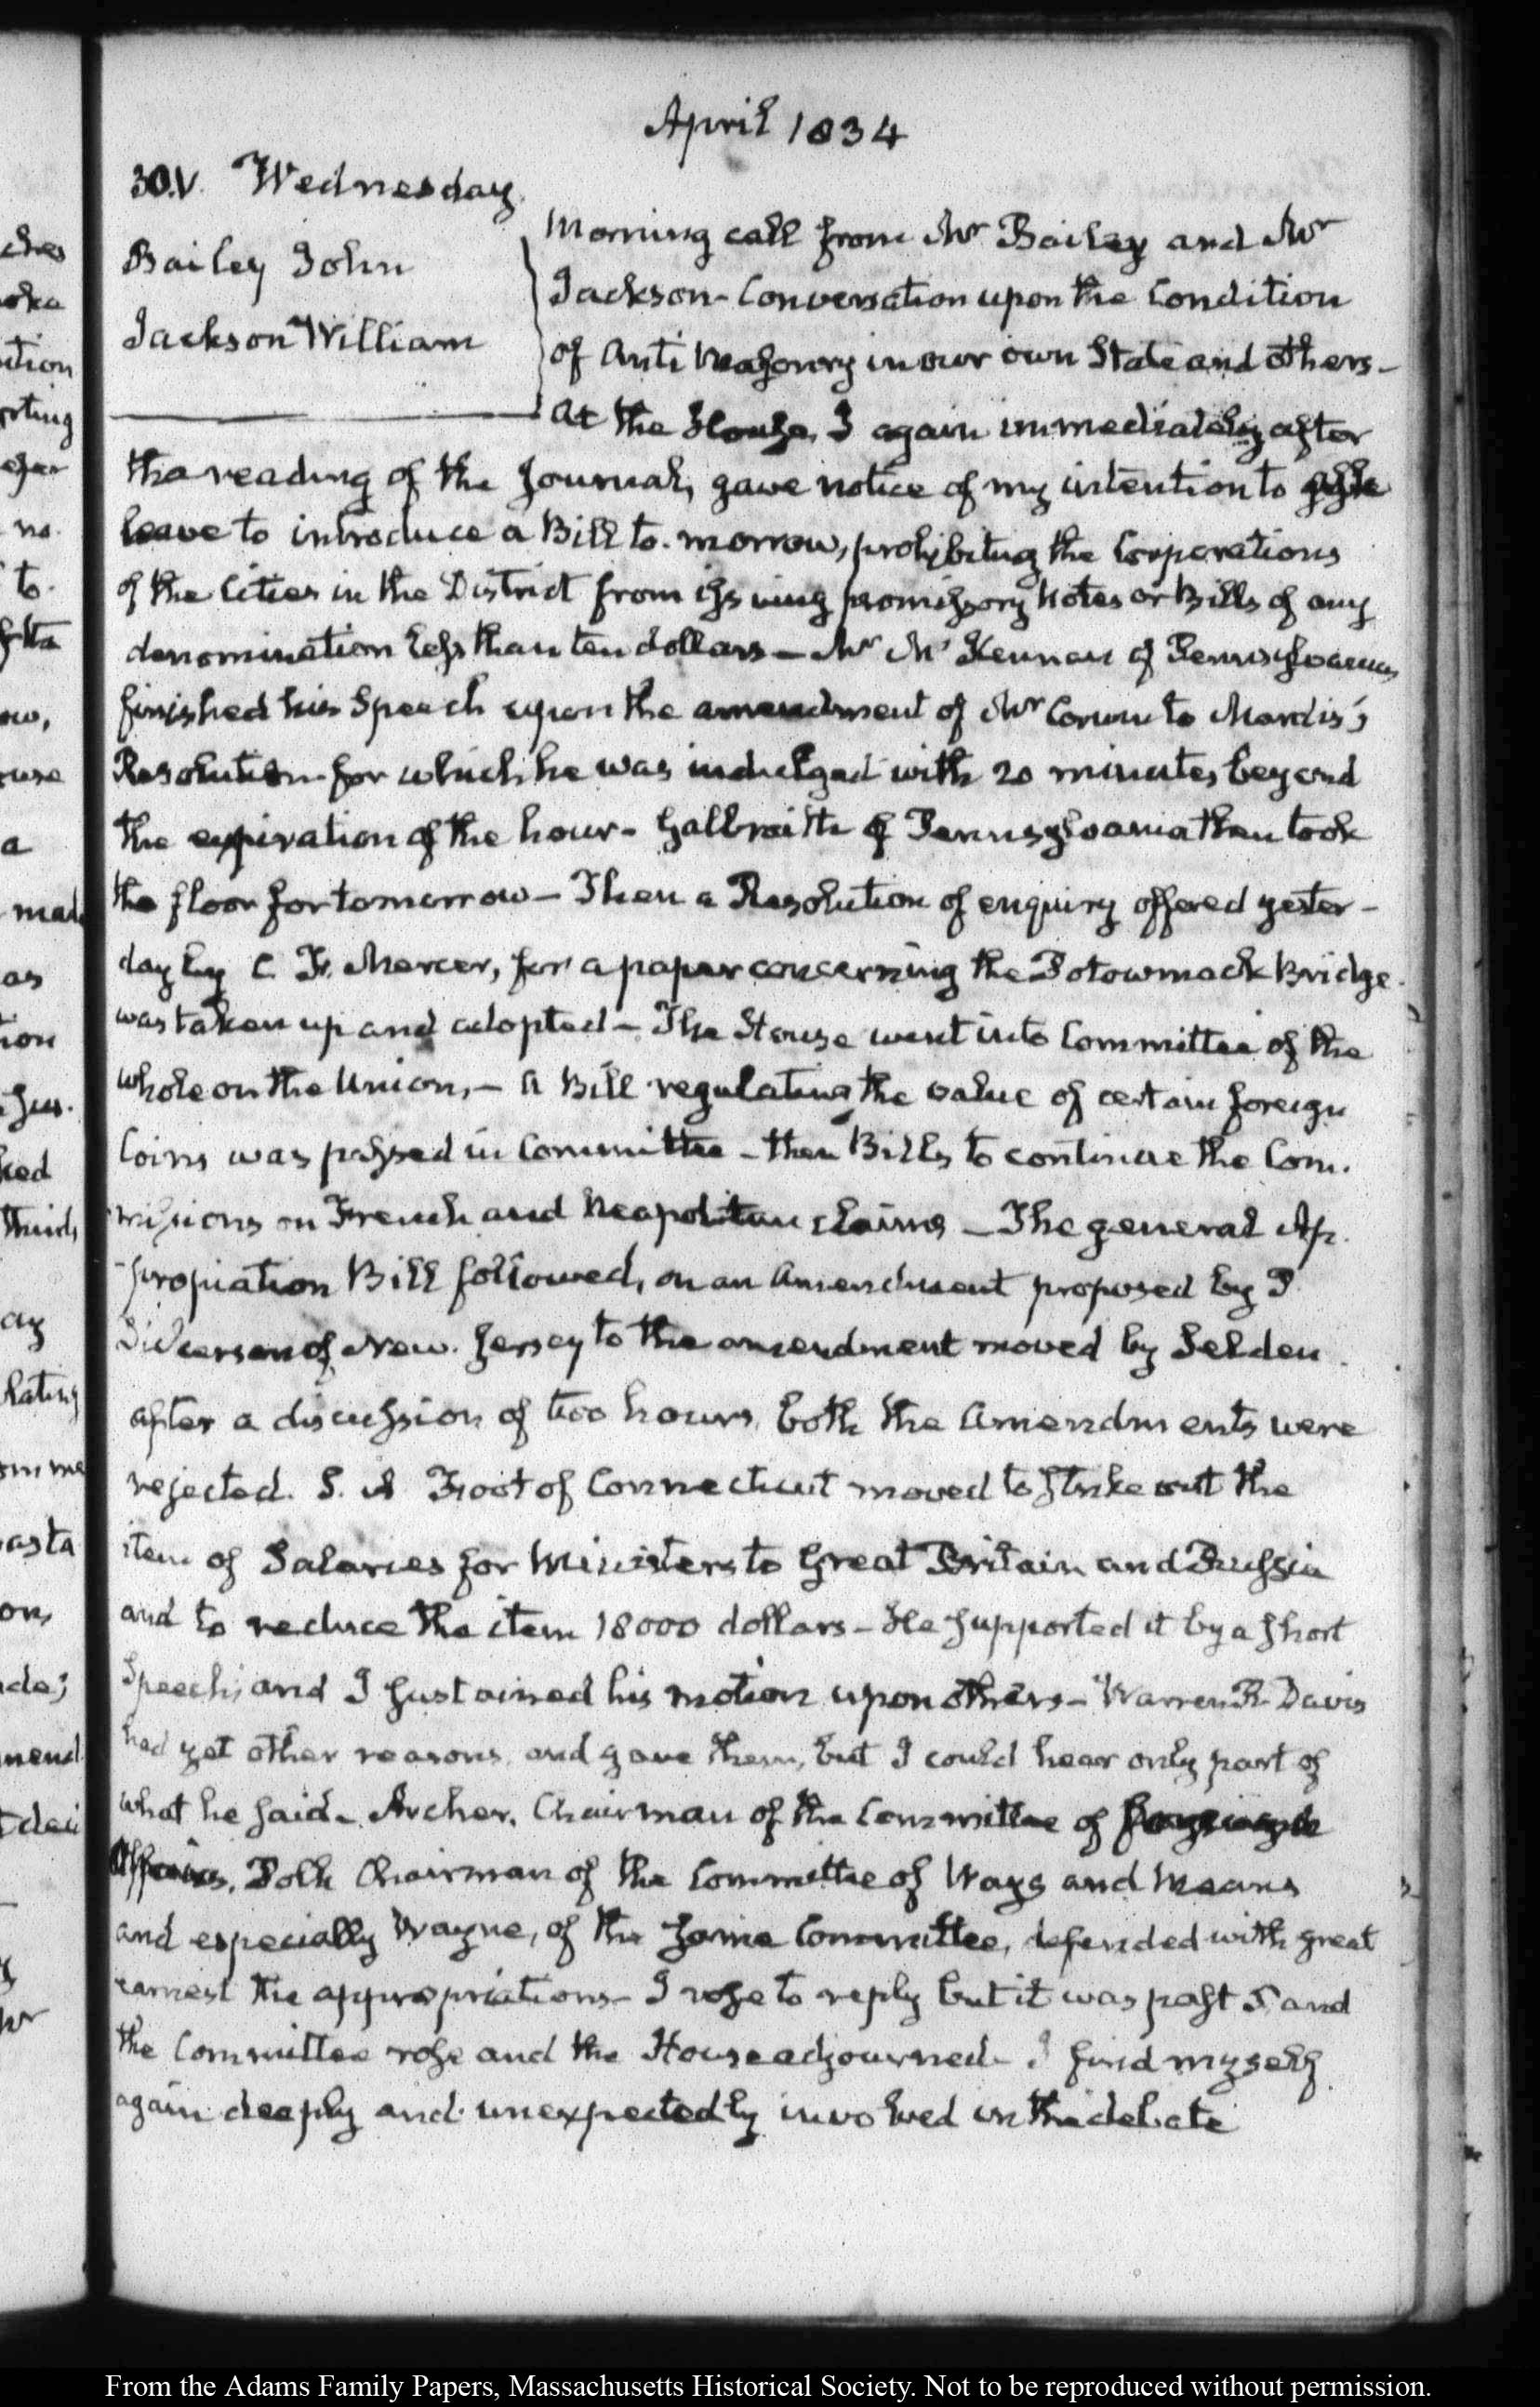 April 1834
30.V. Wednesday.
Bailey John
Jackson William
Morning call from Mr Bailey and Mr
Jackson - Conversation upon the Condition
of Anti Masonry in our own State and others -
At the House, I again immediately after
the reading of the Journal, gave notice of my intention to
leave to introduce a Bill to-morrow, prohibiting the Corporations
of the Cities in the District from issuing promissory Notes or Bills of any
denomination less than ten dollars - Mr McKennan of Pennsylvania
finished his Speech upon the amendment of Mr Corwin to Mardis's
Resolution for which he was indulged with 20 minutes beyond
the expiration of the hour - Galbraith of Pennsylvania then took
the floor for tomorrow - Then a Resolution of enquiry offered yester-
day by C. F. Mercer, for a paper concerning the Potowmack Bridge
was taken up and adopted - The House went into Committee of the
whole on the Union, - A Bill regulating the value of certain foreign
Coins was passed in Committee - then Bills to continue the Com-
missions on French and Neapolitan claims - The general Ap-
-propriation Bill followed, on an Amendment proposed by P.
Dickerson of New-Jersey to the amendment moved by Selden.
after a discussion of two hours, both the Amendments were
rejected. S. A Foot of Connecticut moved to strike out the
item of Salaries for Ministers to Great Britain and Russia
and to reduce the item 18000 dollars - He supported it by a short
Speech; and I sustained his motion upon others - Warren R. Davis
had yet other reasons and gave them, but I could hear only part of
what he said - Archer, Chairman of the Committee of foreign
Affairs, Polk Chairman of the Committee of Ways and Means
and especially Wayne, of the same Committee, defended with great
earnest the appropriations - I rose to reply but it was past 5 and
the Committee rose and the House adjourned - I find myself
again deeply and unexpectedly involved in the debate
From the Adams Family Papers, Massachusetts Historical Society. Not to be reproduced without permission.